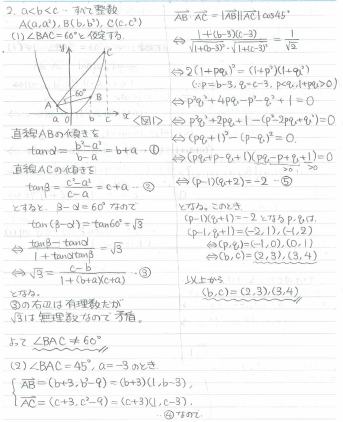 2. a<b<c … すべて整数
A(a, a²), B(b, b²), C(c, c²)
(1) ∠BAC=60°と仮定する。
y
C
60°
B
A
a 0 b c x
<図1>
直線ABの傾きを
tanα = (b²-a²)/(b-a) = b+a …①
直線ACの傾きを
tanβ = (c²-a²)/(c-a) = c+a …②
とすると、β-α=60°なので
tan(β-α)=tan60°=√3
⇔ (tanβ-tanα)/(1+tanαtanβ) = √3
⇔ √3 = (c-b)/(1+(b+a)(c+a)) …③
となる。
③の右辺は有理数だが
√3は無理数なので矛盾。
よって ∠BAC≠60°
(2) ∠BAC=45°, a=-3のとき
AB=(b+3, b²-9)=(b+3)(1, b-3),
AC=(c+3, c²-9)=(c+3)(1, c-3),
…④なので
AB・AC=|AB||AC|cos45°
⇔ (1+(b-3)(c-3))/(√(1+(b-3)²)・√(1+(c-3)²)) = 1/√2
⇔ 2(1+pq)²=(1+p²)(1+q²)
(∵p=b-3, q=c-3, p<q, 1+pq>0)
⇔ p²q²+4pq-p²-q²+1=0
⇔ p²q²+2pq+1-(p²-2pq+q²)=0
⇔ (pq+1)²-(p-q)²=0
⇔ (pq+p-q+1)(pq-p+q+1)=0
>0 >0
⇔ (p-1)(q+1)=-2 …⑤
となる。このとき
(p-1)(q+1)=-2となるp,qは、
(p-1, q+1)=(-2, 1), (-1, 2)
⇔ (p, q)=(-1, 0), (0, 1)
⇔ (b, c)=(2, 3), (3, 4)
以上から
(b, c)=(2, 3), (3, 4)